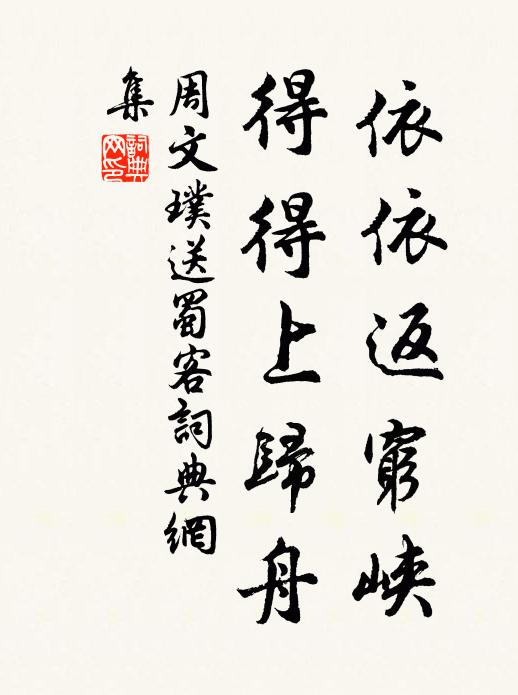 依依返窮峽
得得上歸舟
周文璞送蜀客詞典網
集
詞典
網印